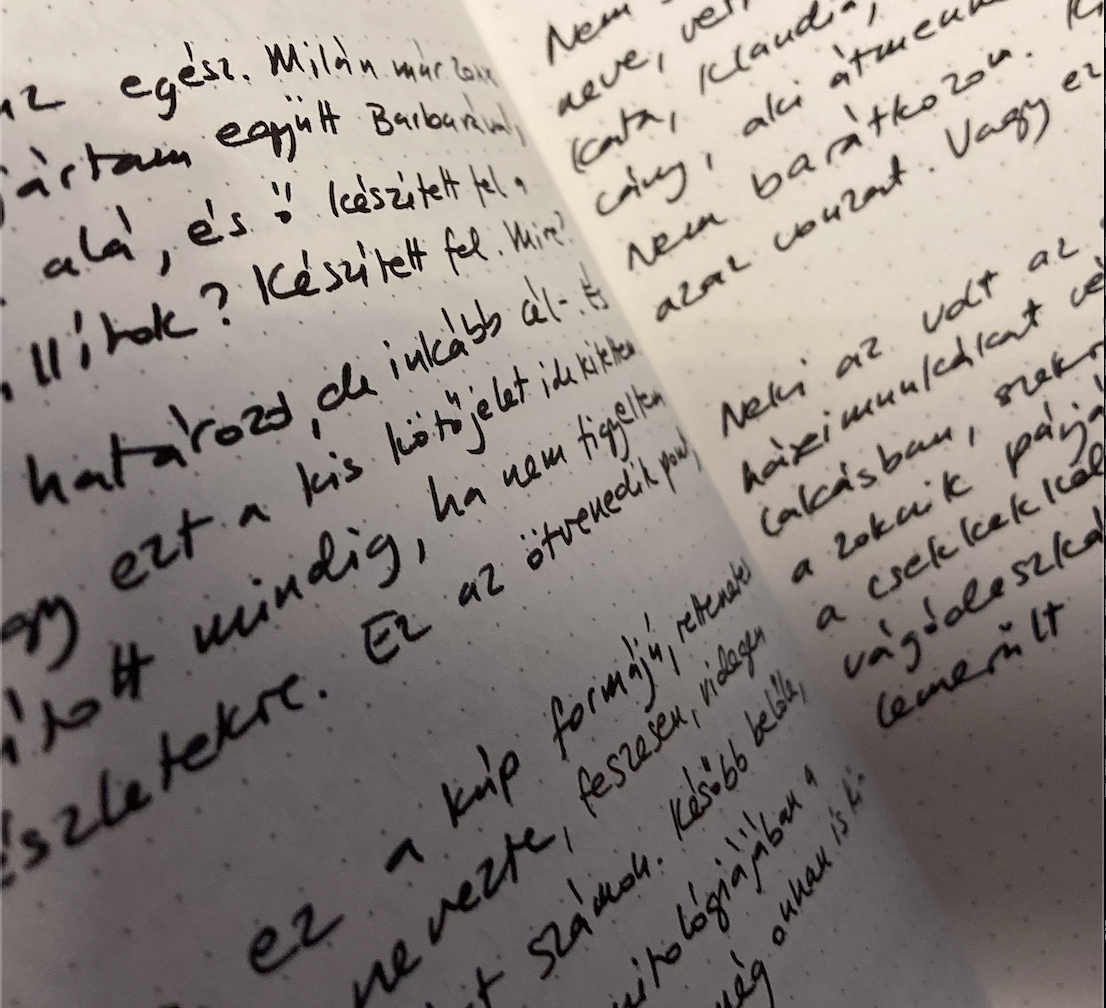 az egész. Milán
jártam együtt Barbarával,
alá, és ő készített fel.
llítok? Készített fel. Mire?
határozd, de inkább cél- és
ezt a kis kötőjelet ide
mindig, ha nem figyeltem
észletekre. Ez az ötvenedik
ez a kúp formájú,
nevezte, feszesen, idegen
számok. Később
mitológiájában
még onnan is ki-
Nem
neve,
Kata, Klaudia,
cány, aki
Nem barátkozom.
azaz vonzat. Vagy ez
Neki az volt az
házimunkákat
lakásban,
a zoknik
a csekkekkel
vágódeszka
lemerült